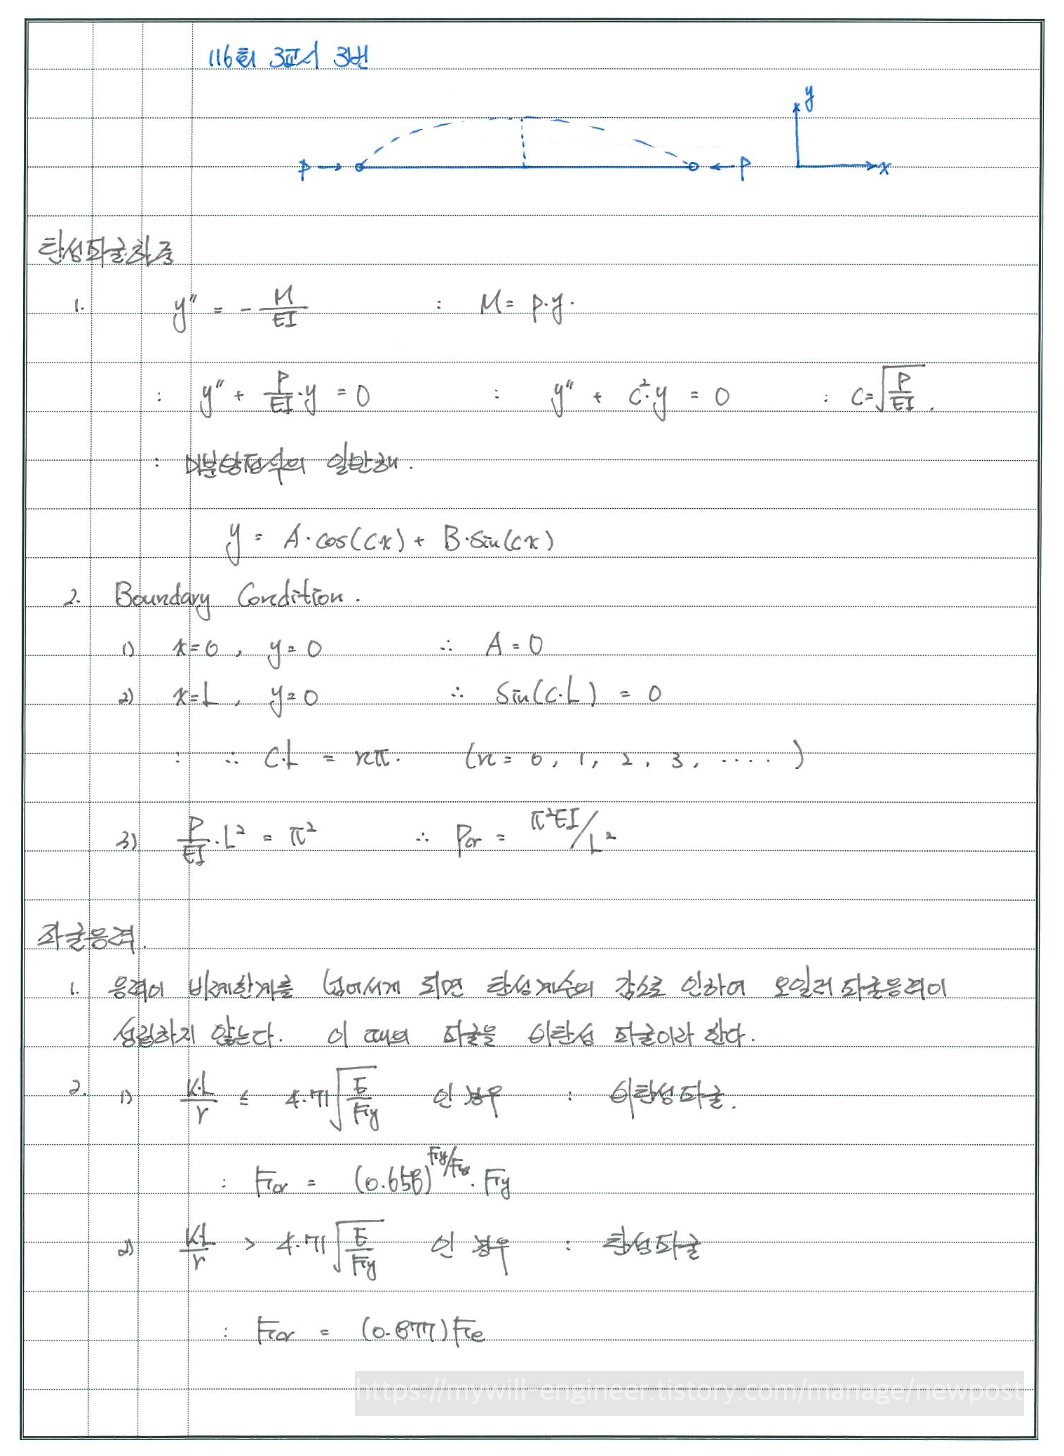 116회 3교시 3번
y
P → ← P x
탄성좌굴하중
1. y" = - M/EI : M = P·y.
: y" + P/EI·y = 0 : y" + c²·y = 0 : c = √(P/EI).
: 미분방정식의 일반해.
y = A·cos(cx) + B·sin(cx)
2. Boundary Condition.
1) x=0, y=0 ∴ A=0
2) x=L, y=0 ∴ Sin(c·L) = 0
: ∴ c·L = nπ. (n = 0, 1, 2, 3, ·····)
3) P/EI·L² = π² ∴ Pcr = π²EI/L²
좌굴응력.
1. 응력이 비례한계를 넘어서게 되면 탄성계수의 감소로 인하여 오일러 좌굴응력이
성립하지 않는다. 이 때의 좌굴을 비탄성 좌굴이라 한다.
2. 1) K·L/r ≤ 4.71√(E/Fy) 인 경우 : 비탄성좌굴.
: Fcr = (0.658)^(Fy/Fe)·Fy
2) K·L/r > 4.71√(E/Fy) 인 경우 : 탄성좌굴
: Fcr = (0.877)Fe
https://mywill-engineer.tistory.com/manage/newpost